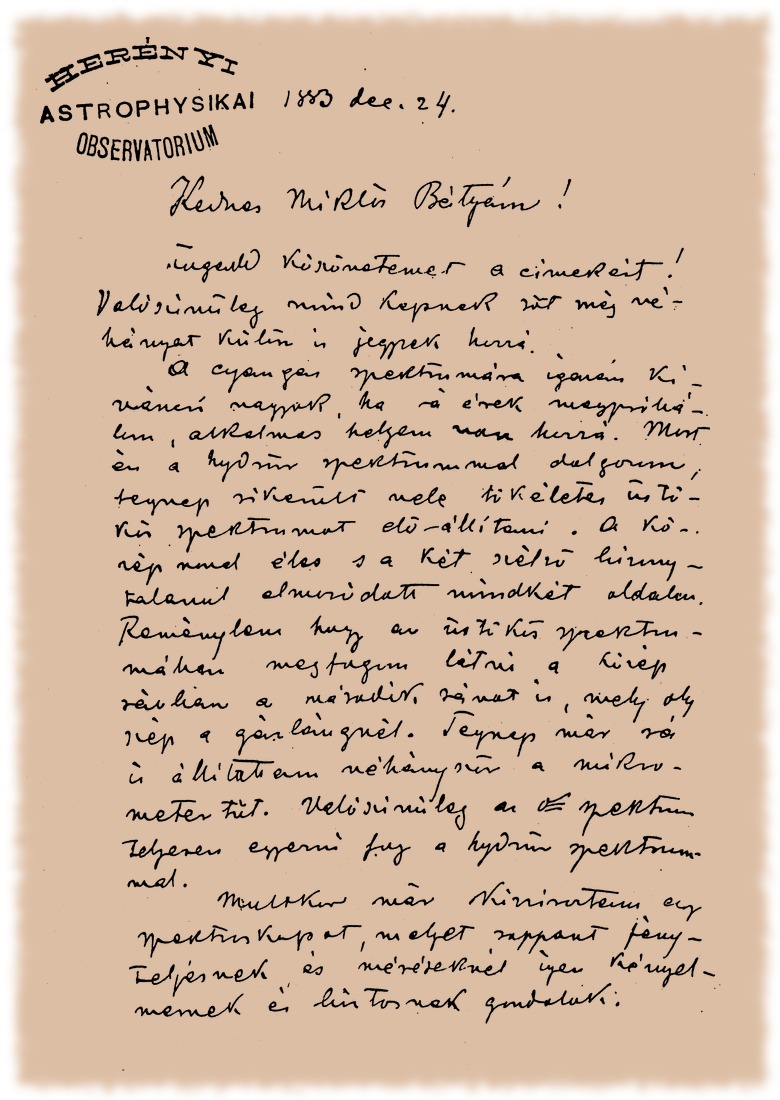 HERÉNYI
ASTROPHYSIKAI
OBSERVATORIUM
1883 dec. 24.
Kedves Miklós Bátyám!
Fogadd köszönetemet a cimekért!
Valószinüleg mind kapnak sőt még né-
hányat külön is jegyzek hozzá.
A cyangas spektrumára igazán ki-
váncsi vagyok, ha rá érek megpróbá-
lom, alkalmas helyem van hozzá. Most
én a hydrür spektrummal dolgozom,
tegnap sikerült vele tökéletes üstö-
kös spektrumot elő-állítani. A kö-
zép vonal éles s a két szélső bizony-
talanul elmosódott mindkét oldalon.
Reménylem hogy az üstökös spektru-
mában meg fogom látni a közép
sávban a második sávot is, mely oly
szép a gázlángnál. Tegnap már rá
is állítottam néhányszor a mikro-
meter tűt. Valószinüleg az spektrum
teljesen egyezni fog a hydrür spektrum-
mal.
Multkor már egy
spektroskopot, melyet roppant fény-
teljesnek és méréseknél igen kényel-
mesnek és biztosnak gondolok.